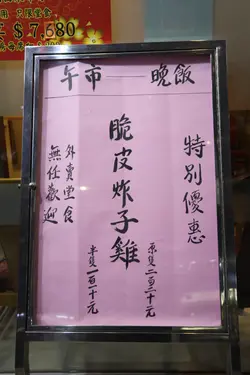 $7,680
午市——晚飯
特別優惠
脆皮炸子雞
原隻二百三十元
半隻一百一十元
外賣堂食
無任歡迎